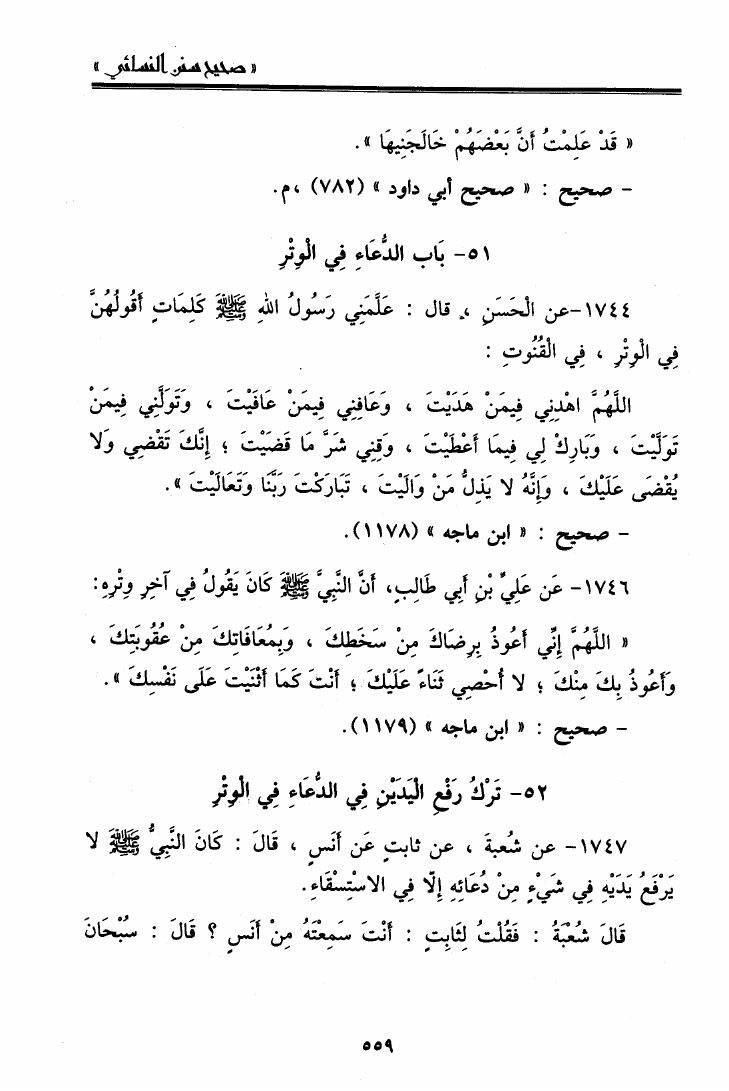 « صحيح سنن النسائي »
« قَدْ عَلِمْتُ أَنَّ بَعْضَهُمْ خَالَجَنِيهَا ».
- صحيح : « صحيح أبي داود » (٧٨٢) ،م.
٥١- بَاب الدُّعَاءِ فِي الْوِتْرِ
١٧٤٤-عن الْحَسَنِ ، قال : عَلَّمَنِي رَسُولُ اللهِ ﷺ كَلِمَاتٍ أَقُولُهُنَّ
فِي الْوِتْرِ ، فِي الْقُنُوتِ :
اللَّهُمَّ اهْدِنِي فِيمَنْ هَدَيْتَ ، وَعَافِنِي فِيمَنْ عَافَيْتَ ، وَتَوَلَّنِي فِيمَنْ
تَوَلَّيْتَ ، وَبَارِكْ لِي فِيمَا أَعْطَيْتَ ، وَقِنِي شَرَّ مَا قَضَيْتَ ؛ إِنَّكَ تَقْضِي وَلَا
يُقْضَى عَلَيْكَ ، وَإِنَّهُ لا يَذِلُّ مَنْ وَالَيْتَ ، تَبَارَكْتَ رَبَّنَا وَتَعَالَيْتَ ».
- صحيح : « ابن ماجه » (١١٧٨).
١٧٤٦- عَن عَلِيٍّ بْنِ أَبِي طَالِبٍ، أَنَّ النَّبِيَّ ﷺ كَانَ يَقُولُ فِي آخِرِ وِتْرِهِ:
« اللَّهُمَّ إِنِّي أَعُوذُ بِرِضَاكَ مِنْ سَخَطِكَ ، وَبِمُعَافَاتِكَ مِنْ عُقُوبَتِكَ ،
وَأَعُوذُ بِكَ مِنْكَ ؛ لا أُحْصِي ثَنَاءً عَلَيْكَ ؛ أَنْتَ كَمَا أَثْنَيْتَ عَلَى نَفْسِكَ ».
- صحيح : « ابن ماجه » (١١٧٩).
٥٢- تَرْكُ رَفْعِ الْيَدَيْنِ فِي الدُّعَاءِ فِي الْوِتْرِ
١٧٤٧- عن شُعبةَ ، عن ثابتٍ عَن أَنَسٍ ، قَالَ : كَانَ النَّبِيُّ ﷺ لا
يَرْفَعُ يَدَيْهِ فِي شَيْءٍ مِنْ دُعَائِهِ إِلّا فِي الاسْتِسْقَاءِ.
قَالَ شُعْبَةُ : فَقُلْتُ لِثَابِتٍ : أَنْتَ سَمِعْتَهُ مِنْ أَنَسٍ ؟ قَالَ : سُبْحَانَ
٥٥٩